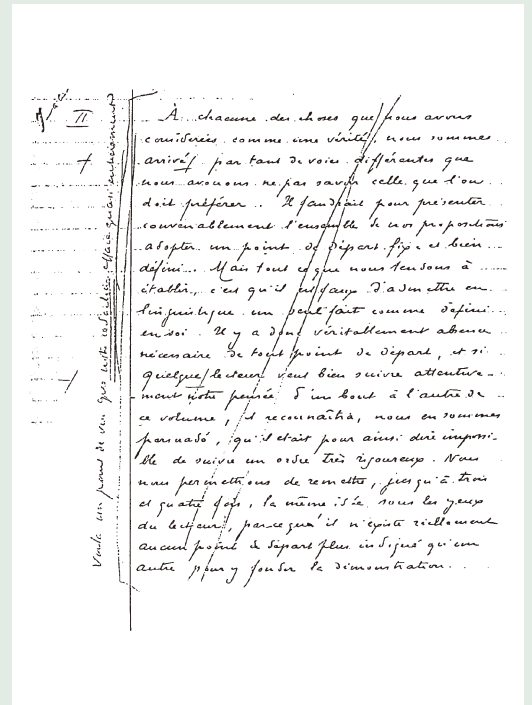 II
À chacune des choses que nous avons
considérées comme une vérité, nous sommes
arrivés par tant de voies différentes que
nous avouons ne pas savoir celle que l'on
doit préférer. Il faudrait pour présenter
convenablement l'ensemble de nos propositions
adopter un point de départ fixe et bien
défini. Mais tout ce que nous tendons à
établir, c'est qu'il est faux d'admettre en
linguistique un seul fait comme défini
en soi. Il y a donc véritablement absence
nécessaire de tout point de départ, et si
quelque lecteur veut bien suivre attentive-
ment notre pensée d'un bout à l'autre de
ce volume, il reconnaîtra, nous en sommes
persuadé, qu'il était pour ainsi dire impossi-
ble de suivre un ordre très rigoureux. Nous
nous permettrons de remettre, jusqu'à trois
et quatre fois, la même idée sous les yeux
du lecteur, parcequ'il n'existe réellement
aucun point de départ plus indiqué qu'un
autre pour y fonder la démonstration.